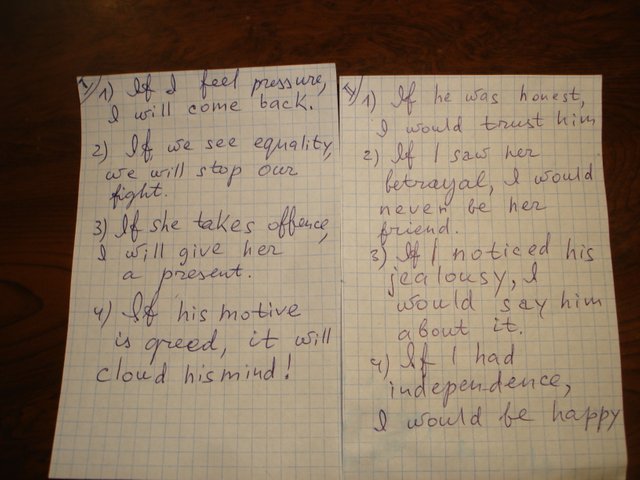 I/ 1) If I feel pressure,
I will come back.
2) If we see equality,
we will stop our
fight.
3) If she takes offence,
I will give her
a present.
4) If his motive
is greed, it will
cloud his mind!
II/ 1) If he was honest,
I would trust him
2) If I saw her
betrayal, I would
never be her
friend.
3) If I noticed his
jealousy, I
would say him
about it.
4) If I had
independence,
I would be happy